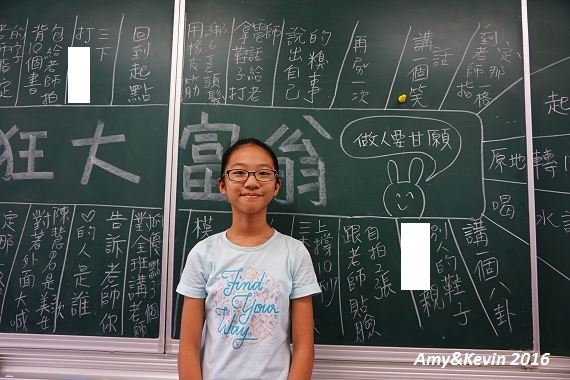 背10個書
包給老師拍
打
三下
回到起點
用橡皮筋
綁5支頭髮
拿鞋子打
說出自己
的糗事
再骰一次
講一個笑
話
到老師指
定那格
狂大富翁
做人要甘願
起
原地轉
喝水
對著外面大喊
♡的人是誰
告訴老師你
對全班講老師
模
跟老師貼臉
自拍一張
親
的鞋子
講一個八卦
Find
Your
Way
Amy&Kevin 2016